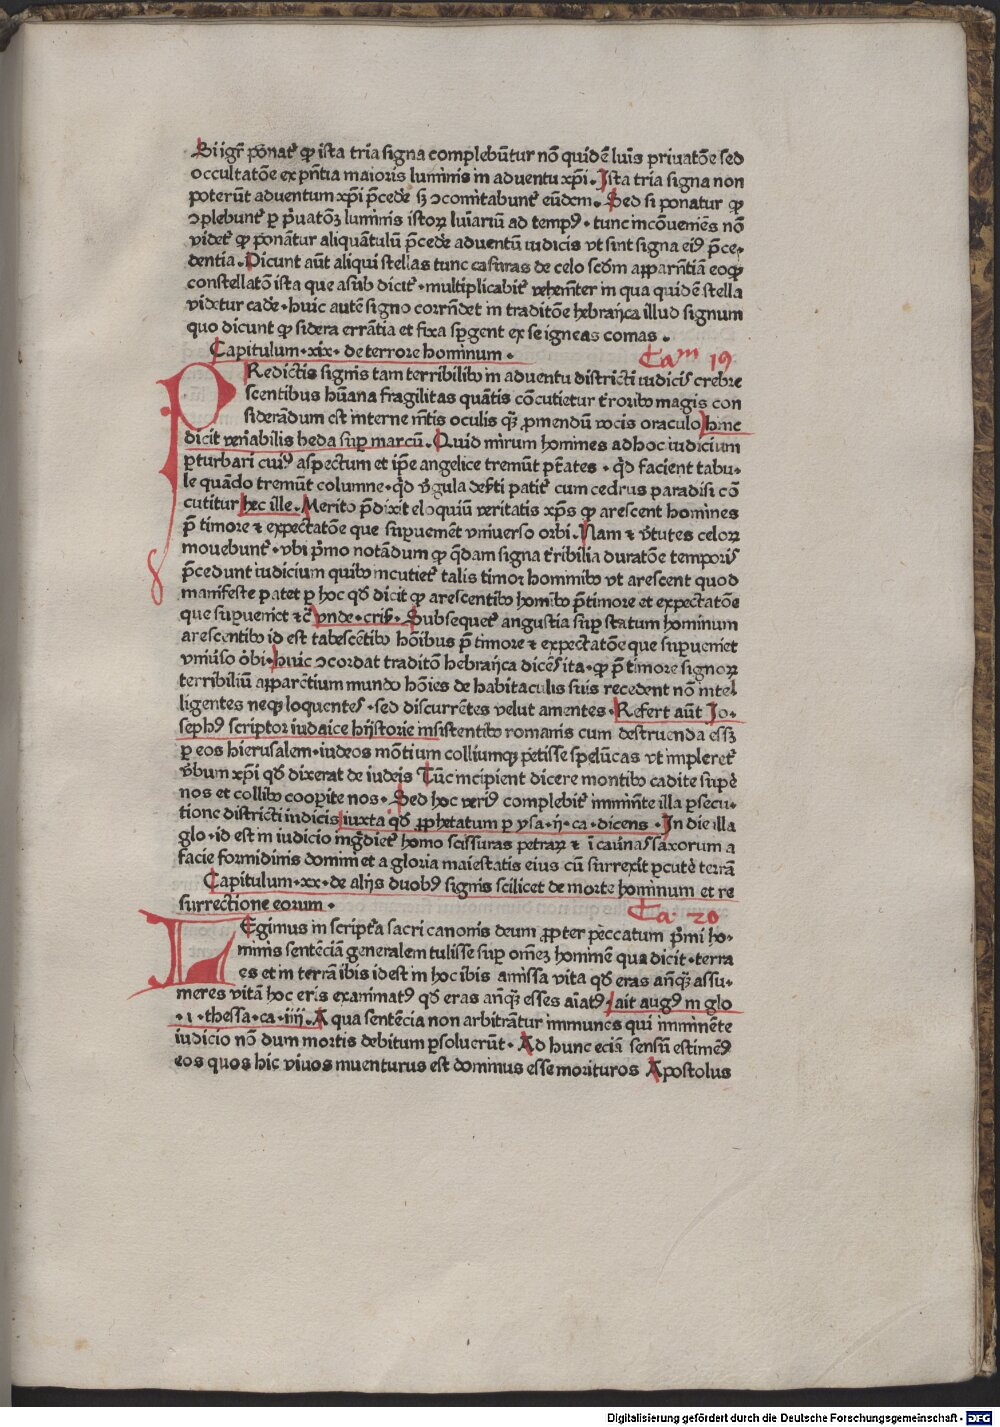 Si igr̄ ponat᷑ ꝙ ista tria signa complebūtur nō quidē luīs priuatōe sed
occultatōe ex pn̄tia maioris luminis in aduentu xp̄i. Ista tria signa non
poterūt aduentum xp̄i p̄cede᷑ sꝫ ↄcomitabunt᷑ eūdem. Sed si ponatur ꝙ
ↄplebunt᷑ ꝑ p̄uatōꝫ luminis istoꝝ lūiariū ad tempꝰ · tunc incōueniēs nō
videt᷑ ꝙ ponātur aliquātulū p̄cede᷑ aduentū iudicis vt sint signa eiꝰ p̄ce-
dentia. Dicunt aūt aliqui stellas tunc casuras de celo scd̄m apparn̄tiā eoqꝫ
constellatō ista que asub dicit᷑ · multiplicabit᷑ vehemēter in qua quidē stella
videtur cade᷑ · huic autē signo corrn̄det in traditōe hebrayca illud signum
quo dicunt ꝙ sidera errātia et fixa sꝑgent ex se igneas comas .
Capitulum · xix · de terrore hominum .
Caᵐ 19
PRedictis signis tam terribilibꝰ in aduentu districti iudicis crebre
scentibus hūana fragilitas quātis cōcutietur t᷑roribꝰ magis con
siderādum est interne mētis oculis qꝫ ꝓmendū vocis oraculo hinc
dicit ven̄abilis beda suꝑ marcū. Quid mirum homines ad hoc iudicium
ꝑturbari cuiꝰ aspectum et ip̄e angelice tremūt ptātes · qͥd facient tabu-
le quādo tremūt columne · qͥd v̄gula def̄ti patit᷑ cum cedrus paradisi cō
cutitur hec ille. Merito p̄dixit eloquiū veritatis xp̄s ꝙ arescent homines
p̄ timore ⁊ expectatōe que suꝑuenient vniuerso orbi. Nam ⁊ v̄tutes celoꝝ
mouebunt᷑ · vbi pͥmo notādum ꝙ q̄dam signa t᷑ribilia duratōe temporis
p̄cedunt iudicium quibꝰ incutiet᷑ talis timor hominibꝰ vt arescent quod
manifeste patet ꝑ hoc qd̄ dicit ꝙ arescentibꝰ homibꝰ p̄timore et expectatōe
que suꝑueniet ⁊c̄ vnde · cris̄. Subsequet᷑ angustia suꝑ statum hominum
arescentibꝰ id est tabescētibꝰ hōibus p̄ timore ⁊ expectatōe que suꝑueniet
vniūso oͬbi · huic ↄcordat traditō hebrayca dicēs ita · ꝙ p̄ timore signoꝝ
terribiliū apparētium mundo hōies de habitaculis suis recedent nō intel
ligentes neqꝫ loquentes · sed discurrētes velut amentes · Refert aūt Jo-
sephꝰ scriptor iudaice hystorie insistentibꝰ romanis cum destruenda essꝫ
ꝑ eos hierusalem · iudeos mōtium colliumqꝫ petisse spelūcas vt impleret᷑
v̄bum xp̄i qd̄ dixerat de iudeis Tūc incipient dicere montibꝰ cadite suꝑ
nos et collibꝰ cooꝑite nos · Sed hoc veriꝰ complebit᷑ iminēte illa ꝑsecu-
tione districti iudicis iuxta qd̄ ꝓphetatum ꝑ ysa · ij · ca · dicens · In die illa
glo · id est in iudicio ing̃diet᷑ homo scissuras petraꝝ ⁊ ī cau̾nas saxorum a
facie formidinis domini et a gloria maiestatis eius cū surrexit ꝑcute᷑ terrā
Capitulum · xx · de alijs duobꝰ signis scilicet de morte hominum et re
surrectione eorum ·
Ca 20
LEgimus in scriptᷓa sacri canonis deum ꝓpter peccatum pͥmi ho-
minis sentēciā generalem tulisse suꝑ omēꝫ hominē qua dicit · terra
es et in terrā ibis id est in hoc ibis amissa vita qd̄ eras an̄qꝫ assu-
meres vitā hoc eris exanimatꝰ qd̄ eras an̄qꝫ esses aīatꝰ · ait augꝰ in glo
· ı · thessa · ca · iiij · A qua sentēcia non arbitrātur immunes qui iminēte
iudicio nō dum mortis debitum ꝑsoluerūt · Ad hunc eciā sensū estimēꝰ
eos quos hic viuos inuenturus est dominus esse morituros Apostolus
Digitalisierung gefördert durch die Deutsche Forschungsgemeinschaft - DFG